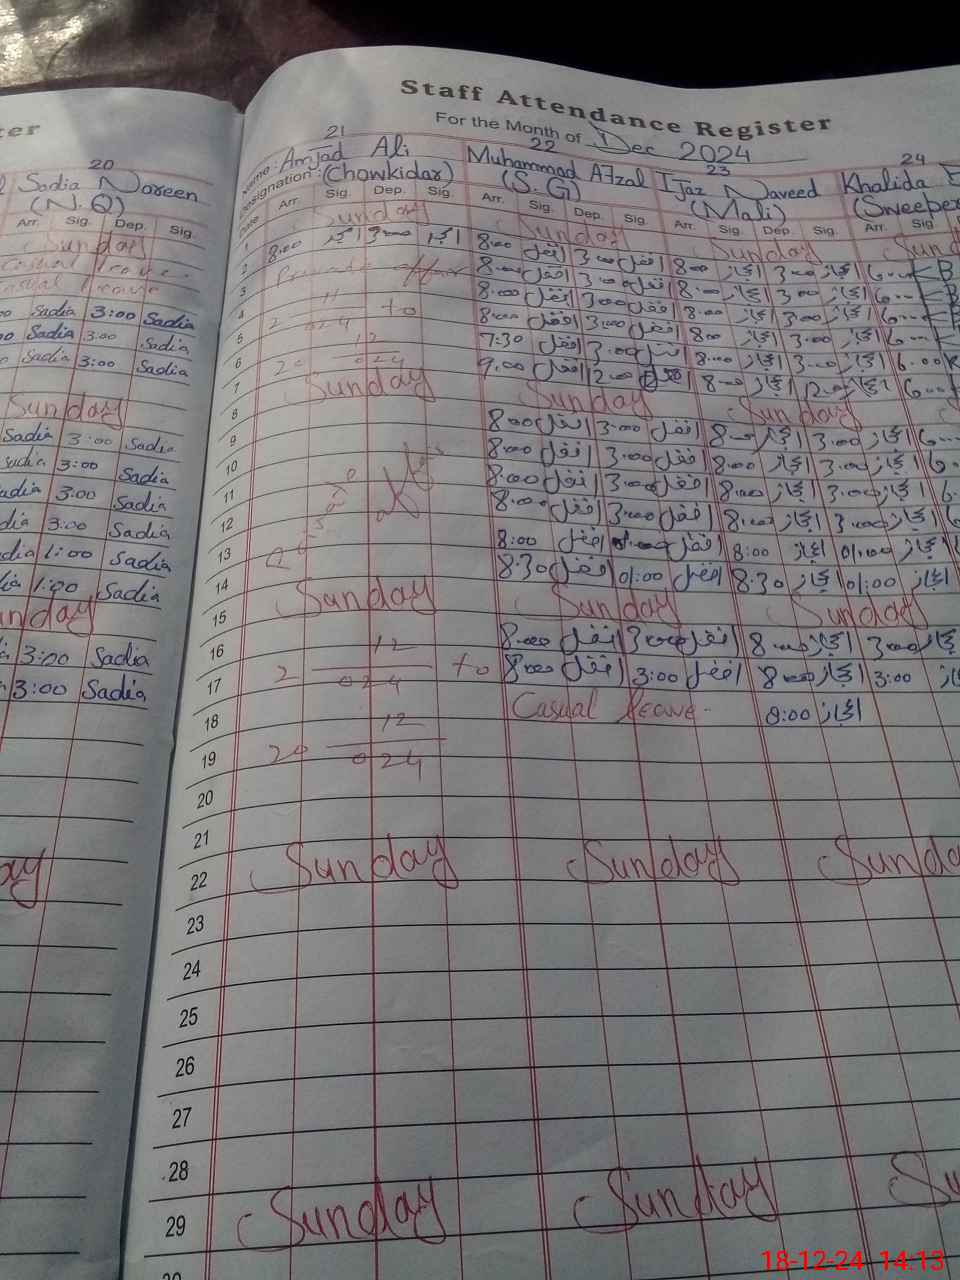 Staff Attendance Register
For the Month of Dec 2024
ter
20
Sadia Noreen
(N.Q)
Arr. Sig. Dep. Sig.
Sunday
Casual leave
Casual leave
Sadia 3:00 Sadia
Sadia 3:00 Sadia
Sadia 3:00 Sadia
Sunday
Sadia 3:00 Sadia
Sadia 3:00 Sadia
adia 3:00 Sadia
dia 3:00 Sadia
dia 1:00 Sadia
1:00 Sadia
unday
3:00 Sadia
3:00 Sadia
ay
21 22 23 24
Name: Amjad Ali Muhammad Afzal Ijaz Naveed Khalida
Designation: (Chowkidar) (S.G) (Mali) (Sweeper
Date Arr. Sig. Dep. Sig. Arr. Sig. Dep. Sig. Arr. Sig. Dep. Sig. Arr. Sig.
1 Sunday Sunday Sunday Sun
2 8:00 امجد 3:00 امجد 8:00 افضل 3:00 افضل 8:00 اعجاز 3:00 اعجاز 6:00
3 8:00 افضل 3:00 افضل 8:00 اعجاز 3:00 اعجاز 6:00
4 8:00 افضل 3:00 افضل 8:00 اعجاز 3:00 اعجاز 6:00
5 2 024 to 8:00 افضل 3:00 افضل 8:00 اعجاز 3:00 اعجاز 6:00
6 12 7:30 افضل 3:00 افضل 8:00 اعجاز 3:00 اعجاز 6:00
7 20 024 9:00 افضل 12:00 افضل 8:00 اعجاز 12:00 اعجاز 6:00
8 Sunday Sunday Sunday
9 8:00 افضل 3:00 افضل 8:00 اعجاز 3:00 اعجاز 6:00
10 8:00 افضل 3:00 افضل 8:00 اعجاز 3:00 اعجاز 6
11 8:00 افضل 3:00 افضل 8:00 اعجاز 3:00 اعجاز 6
12 8:00 افضل 3:00 افضل 8:00 اعجاز 3:00 اعجاز
13 8:00 افضل افضل 8:00 اعجاز 01:00 اعجاز
14 8:30 افضل 01:00 افضل 8:30 اعجاز 01:00 اعجاز
15 Sunday Sunday Sunday
16 12 8:00 افضل 3:00 افضل 8:00 اعجاز 3:00 اعجاز
17 2 024 to 8:00 افضل 3:00 افضل 8:00 اعجاز 3:00
18 12 Casual leave 8:00 اعجاز
19 20 024
20
21
22 Sunday Sunday Sunda
23
24
25
26
27
28
29 Sunday Sunday Su
30
18-12-24 14:13